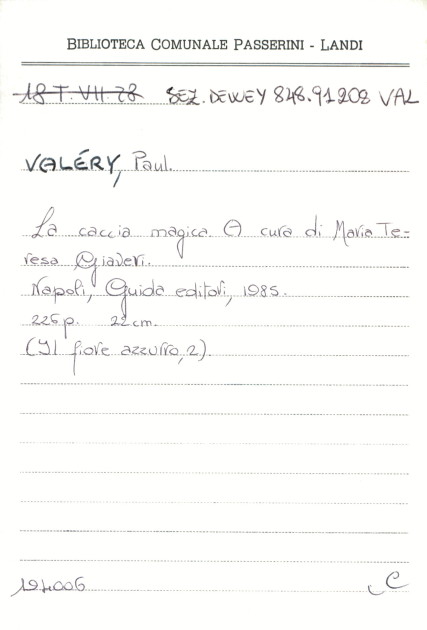 BIBLIOTECA COMUNALE PASSERINI - LANDI
18 T. VII. 78 SEZ. DEWEY 848.91208 VAL
VALÉRY, Paul.
La caccia magica. A cura di Maria Te=
resa Giaveri.
Napoli, Guida editori, 1985.
225 p. 22 cm.
(Il fiore azzurro, 2).
194006 C